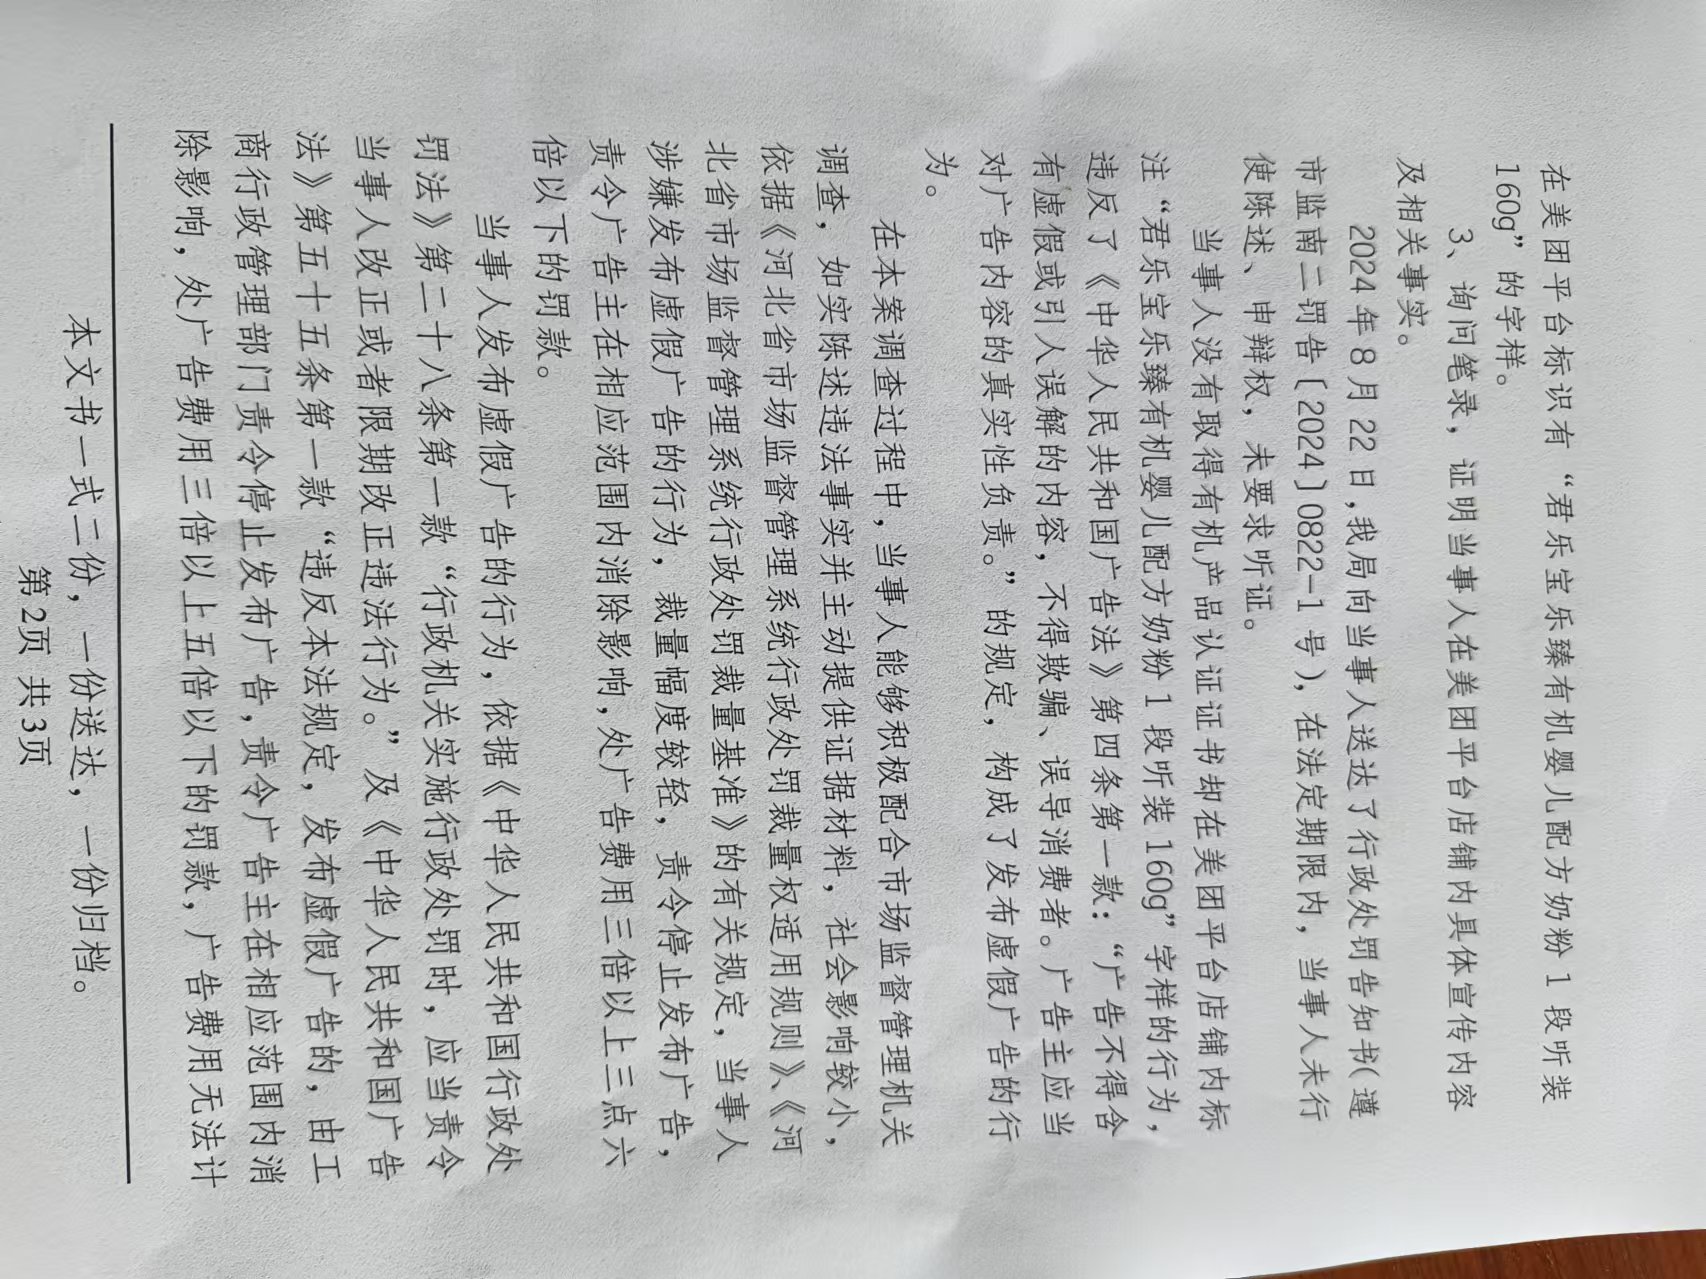 在美团平台标识有“君乐宝乐臻有机婴儿配方奶粉 1 段听装
160g”的字样。
3、询问笔录，证明当事人在美团平台店铺内具体宣传内容
及相关事实。
2024 年 8 月 22 日，我局向当事人送达了行政处罚告知书（遵
市监南二罚告〔2024〕0822-1 号），在法定期限内，当事人未行
使陈述、申辩权，未要求听证。
当事人没有取得有机产品认证证书却在美团平台店铺内标
注“君乐宝乐臻有机婴儿配方奶粉 1 段听装 160g”字样的行为，
违反了《中华人民共和国广告法》第四条第一款：“广告不得含
有虚假或引人误解的内容，不得欺骗、误导消费者。广告主应当
对广告内容的真实性负责。”的规定，构成了发布虚假广告的行
为。
在本案调查过程中，当事人能够积极配合市场监督管理机关
调查，如实陈述违法事实并主动提供证据材料，社会影响较小，
依据《河北省市场监督管理系统行政处罚裁量权适用规则》、《河
北省市场监督管理系统行政处罚裁量基准》的有关规定，当事人
涉嫌发布虚假广告的行为，裁量幅度较轻，责令停止发布广告，
责令广告主在相应范围内消除影响，处广告费用三倍以上三点六
倍以下的罚款。
当事人发布虚假广告的行为，依据《中华人民共和国行政处
罚法》第二十八条第一款“行政机关实施行政处罚时，应当责令
当事人改正或者限期改正违法行为。”及《中华人民共和国广告
法》第五十五条第一款“违反本法规定，发布虚假广告的，由工
商行政管理部门责令停止发布广告，责令广告主在相应范围内消
除影响，处广告费用三倍以上五倍以下的罚款，广告费用无法计
本文书一式二份，一份送达，一份归档。
第2页 共3页